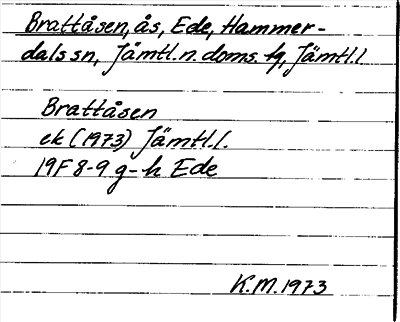 Brattåsen, ås, Ede, Hammer-
dals sn, Jämtl. n. doms. tg, Jämtl. l.
Brattåsen
ek (1973) Jämtl. l.
19F 8-9 g-h Ede
K.M. 1973